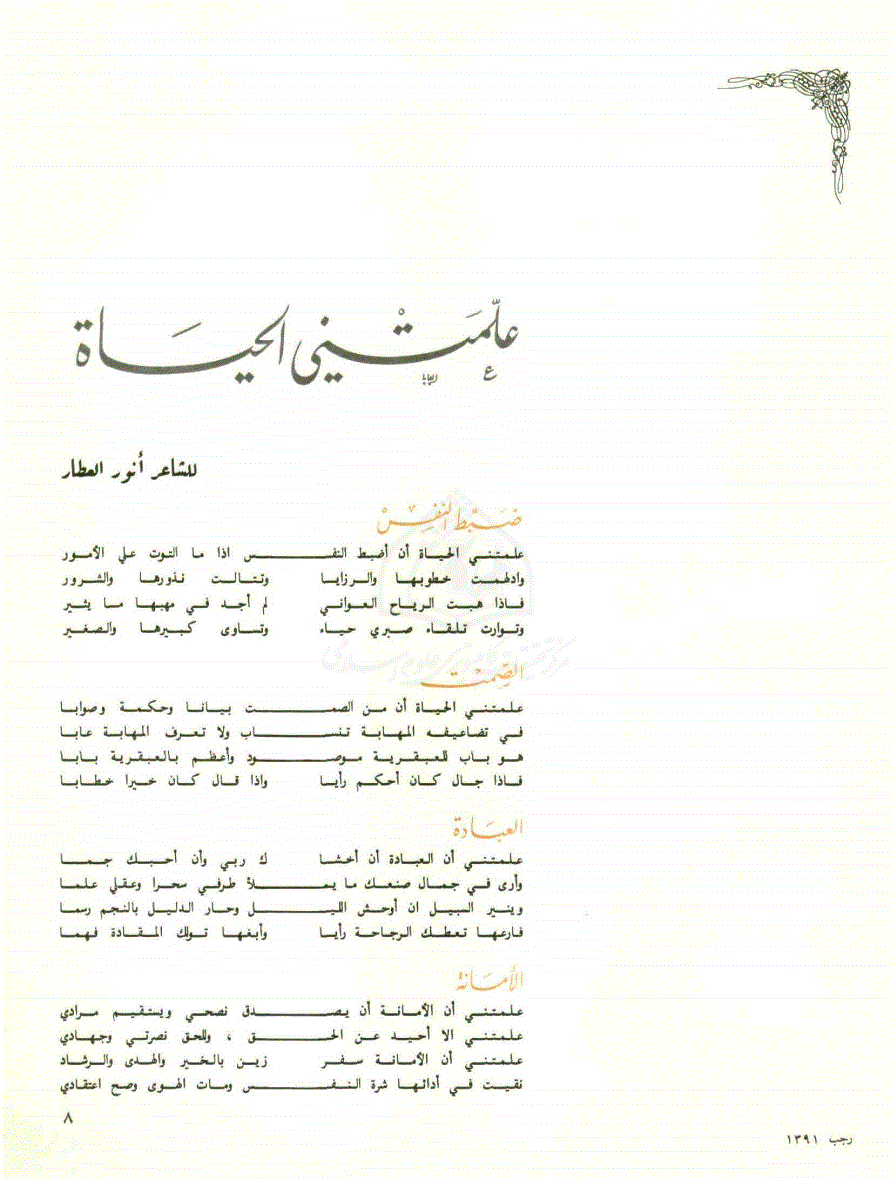 علّمَتْني الحيَاة
للشاعر أنور العطار
ضَبْط النفِسْ
علمتني الحياة أن أضبط النفـــس اذا ما التوت علي الأمور
وادلهمت خطوبها والرزايا وتتالت نذورها والشرور
فاذا هبت الرياح العواتي لم أجد في مهبها ما يثير
وتوارت تلقاء صبري حياء وتساوى كبيرها والصغير
الصِّمْت
علمتني الحياة أن من الصمـــت بيانا وحكمة وصوابا
في تضاعيفه المهابة تنســـاب ولا تعرف المهابة عابا
هو باب للعبقرية موصـــود وأعظم بالعبقرية بابا
فاذا جال كان أحكم رأيا واذا قال كان خيرا خطابا
العبَادة
علمتني أن العبادة أن أخشا ك ربي وأن أحبك جمـا
وأرى في جمال صنعك ما يمـــلأ طرفي سحرا وعقلي علما
وينير السبيل ان أوحش الليـــل وحار الدليل بالنجم رسما
فارعها تعطك الرجاحة رأيا وأبغها تولك المقادة فهما
الأمَانة
علمتني أن الأمانة أن يصـــدق نصحي ويستقيم مرادي
علمتني الا أحيد عن الحـــق ، وللحق نصرتي وجهادي
علمتني أن الأمانة سفر زين بالخير والهدى والرشاد
نقيت في أدائها شرة النفـــس ومات الهوى وصح اعتقادي
٨
رجب ١٣٩١